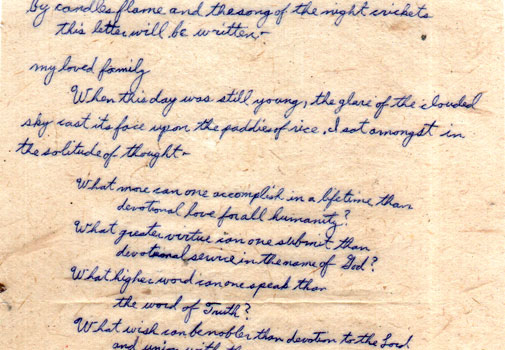 by candles flame and the song of the night crickets
this letter will be written -
my loved family
When this day was still young, the glare of the clouded
sky cast its face upon the paddies of rice, I sat amongst in
the solitude of thought -
What more can one accomplish in a lifetime than
devotional love for all humanity?
What greater virtue can one submit than
devotional service in the name of God?
What higher word can one speak than
the word of Truth?
What wish can be nobler than devotion to the Lord
and union with